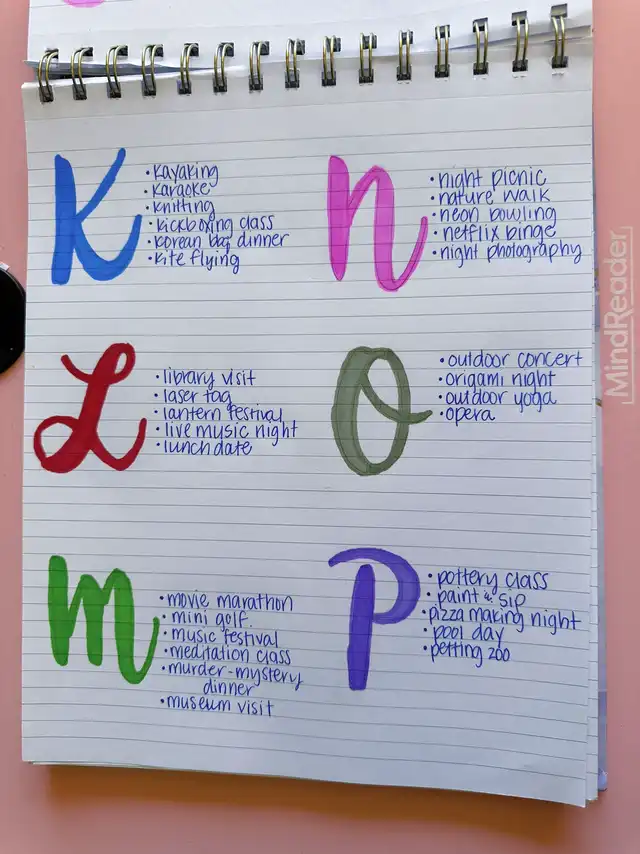 K
• kayaking
• karaoke
• knitting
• kickboxing class
• korean bbq dinner
• kite flying
L
• library visit
• laser tag
• lantern festival
• live music night
• lunch date
m
• movie marathon
• mini golf.
• music festival
• meditation class
• murder-mystery
dinner
• museum visit
n
• night picnic
• nature walk
• neon bowling
• netflix binge
• night photography
O
• outdoor concert
• origami night
• outdoor yoga
• opera
P
• pottery class
• paint & sip
• pizza making night
• pool day
• petting zoo
MindReader